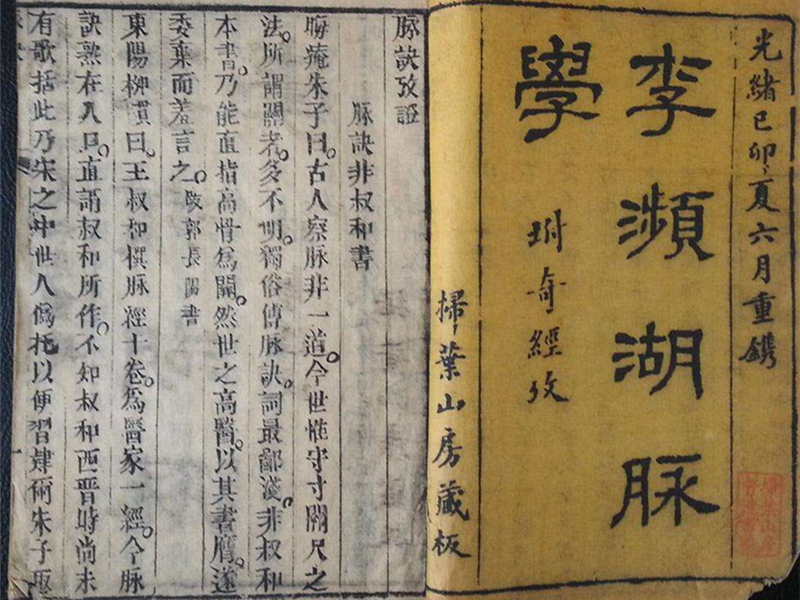 光緒已卯夏六月重鐫
李瀕湖脉
學
坿奇經攷
掃葉山房藏板
脉訣攷證
脉訣非叔和書
晦庵朱子曰。古人察脉非一道。今世惟守寸關尺之
法。所謂關者。多不明。獨俗傳脉訣。詞最鄙淺。非叔和
本書。乃能直指高骨爲關。然世之高醫。以其書贋。遂
委棄而羞言之。跋郭長陽書
東陽柳貫曰。王叔和撰脉經十卷。爲醫家一經。今脉
訣熟在人口。直謂叔和所作。不知叔和西晉時尚未
有歌括此乃宋之中世人僞托以便習肄朱子取